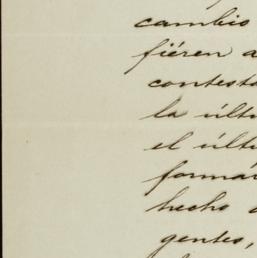 cambio
fiéren a
contesta
la últi
el últi
formár
hecho
gentes,